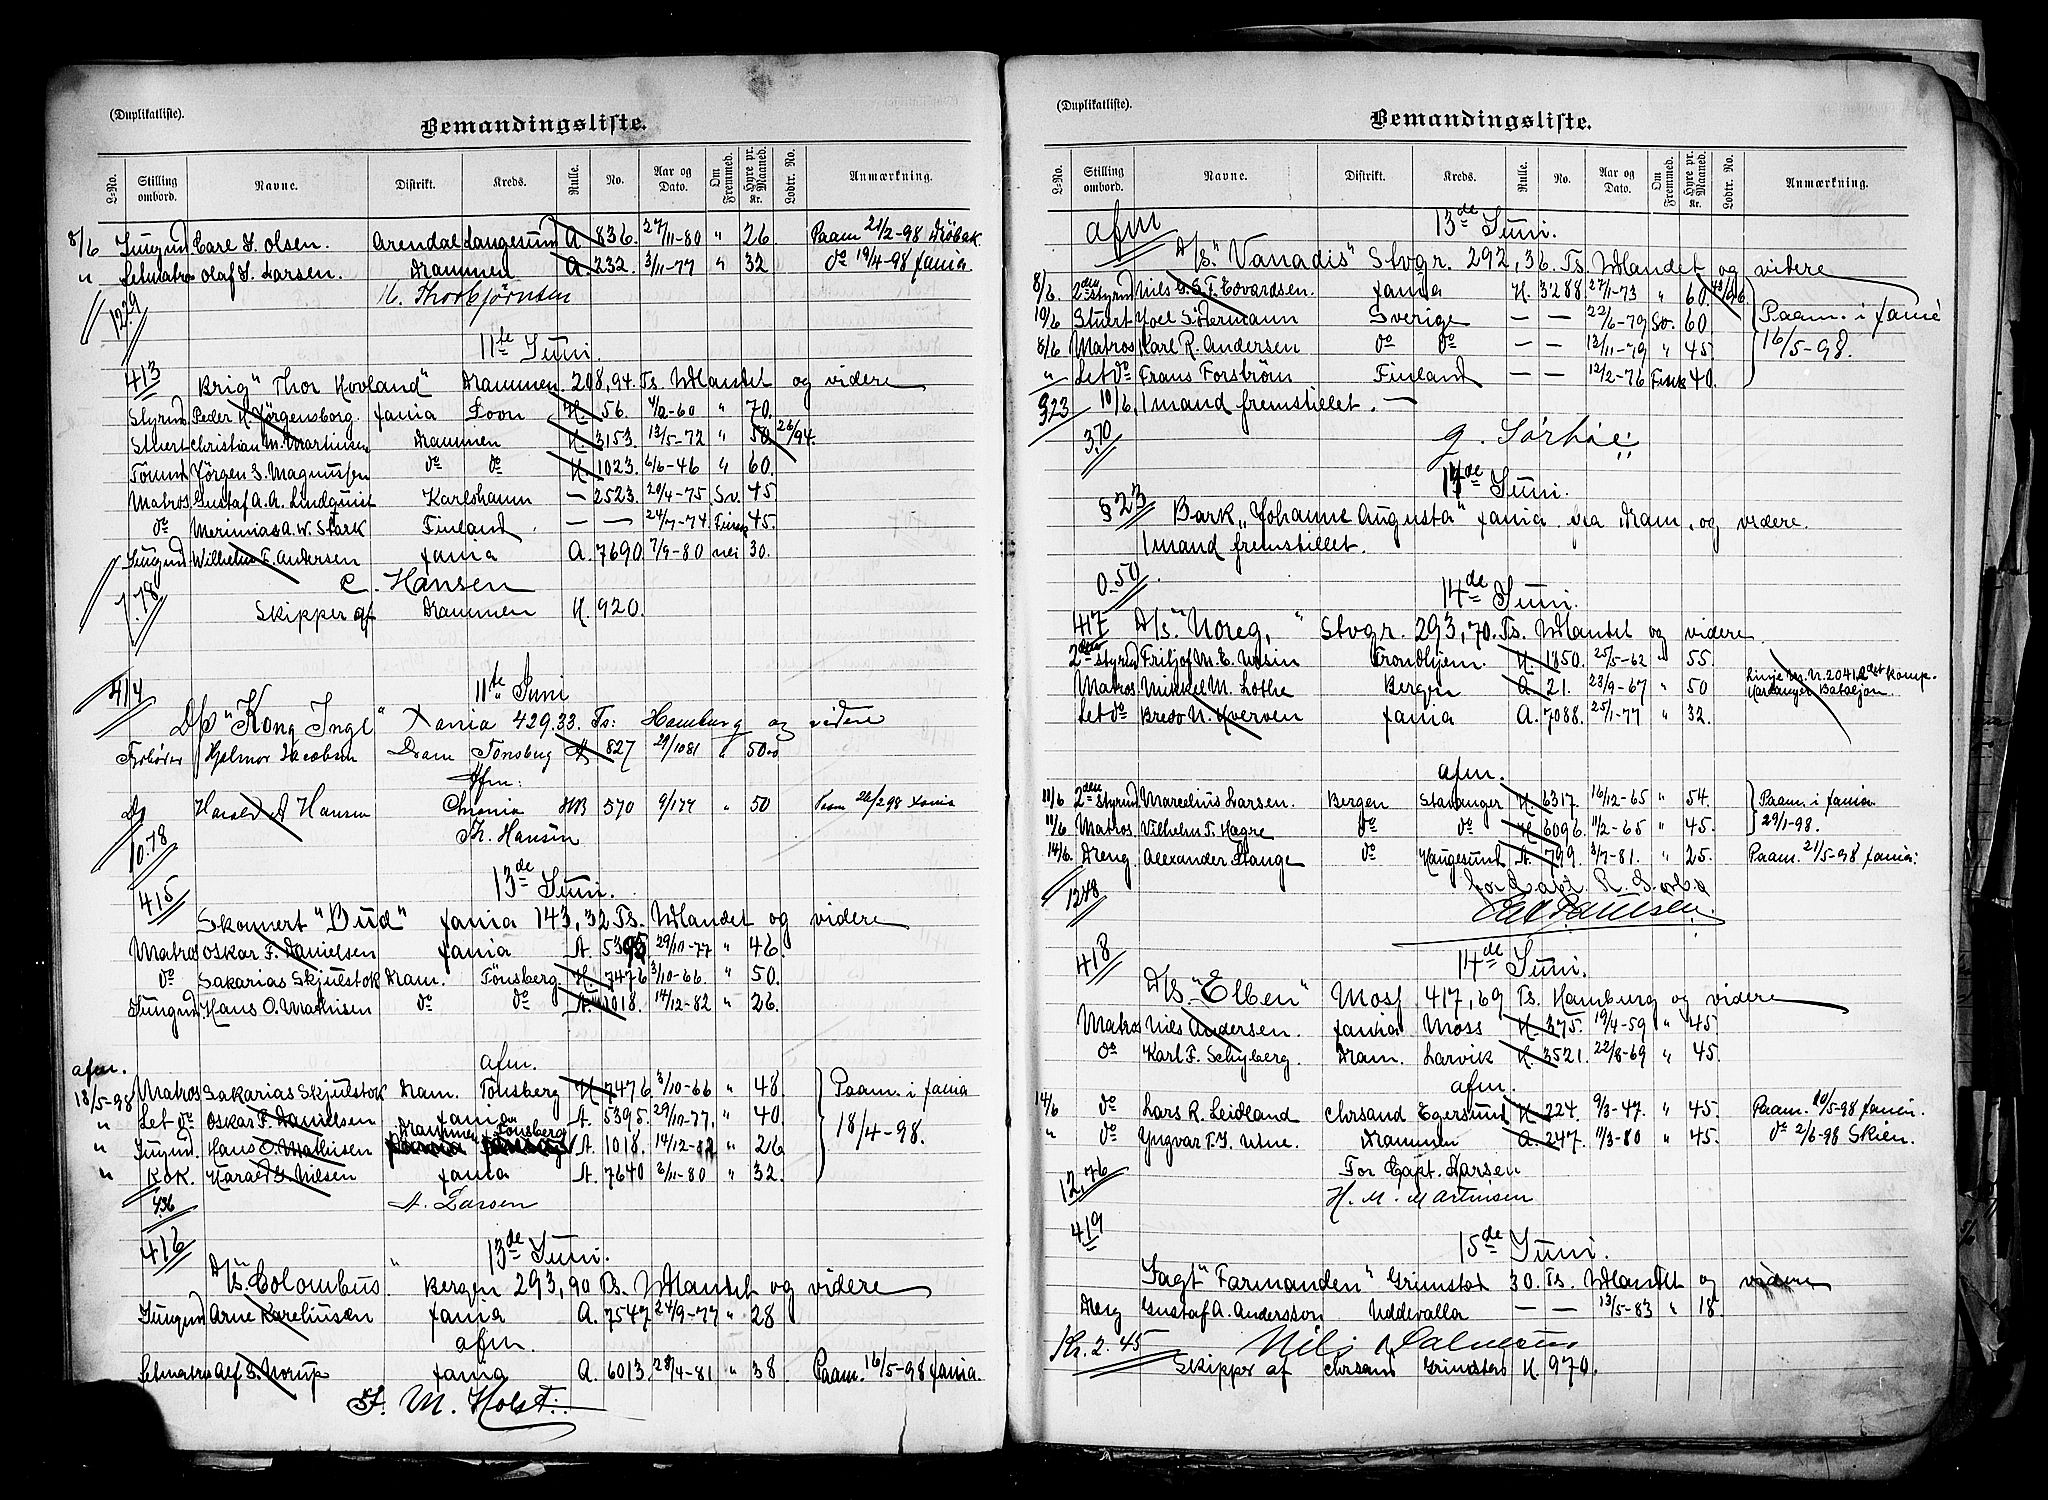 (Duplikatliste).
Bemandingsliste.
L-No. Stilling ombord. Navne. Distrikt. Kreds. Rulle. No. Aar og Dato. Om Fremmed. Hyre pr. Maaned. Kr. Lodtr. No. Anmærkning.
8/6 Jungmd Carl J. Olsen. Arendal Langesund A. 836. 27/11-80 " 26 Paam 21/2-98 Dröbak
" Letmatros Olaf J. Larsen. Drammen A. 232. 3/11-77 " 32 do 19/4-98 Xania
N. Thorbjörnsen
12.29
11te Juni.
413 Brig "Thor Hovland" Drammen 208,94. Ts. Udlandet og videre
Styrmd Peder H. Jörgensborg. Xania Hoon H. 56. 4/2-60 " 70.
Stuert Christian M. Martinsen Drammen H. 3153. 13/5-72 " 50. 26/94.
Tömmt Jörgen S. Magnussen do do H. 1023. 6/6-46 " 60.
Matros Gustaf A. A. Lindquist Karlshamn — 2523. 20/4-75 Sv. 45
do Merinnias A. W. Stark Finland. — — 24/7-74 Finsk 45.
Jungmd Wilhelm F. Andersen Xania A. 7690 7/9-80 nei 30.
C. Hansen
7.78
Skipper af Drammen H. 920.
414 11te Juni
D/s "Kong Inge" Xania 429.33. Ts: Hamburg og videre
Hjalmar Jacobsen Dram Tönsberg A 827 29/10 81 " 50.00
Afm:
Do Harald A Hansen Chrania HB 570 9/1 77 " 50 Paam 22/2 98 Xania
Th. Hansen
10.78
13de Juni.
415
Skonnert "Bud" Xania 143,32 Ts. Udlandet og videre
Matros Oskar F. Danielsen Xania A. 5395 29/10-77 " 46.
do Sakarias Skjulstok Dram. Tönsberg. H. 7476 3/10-66. " 50.
Jungmd. Hans O. Mathisen do do A. 1018. 14/12-82 " 26.
afm.
afm.
18/5-98 Matros Sakarias Skjulstok Dram. Tönsberg H 7476 3/10-66 " 48. Paam. i Xania
" Let do Oskar F. Danielsen Xania A. 5395. 29/10-77. " 40. 18/4-98.
" Jungmd. Hans O. Mathisen Drammen Tönsberg A. 1018. 14/12-82 " 26
" Kok. Harald G. Nilsen Xania A. 7640 6/11-80 " 32.
4.36 A. Larsen
416 13de Juni.
D/s. "Colombus" Bergen 293,90 Ts. Udlandet og videre
Jungmd Arne Kareliusen Xania A. 7547 24/9-77 " 28
afm.
Letmatros Alf S. Norup Xania A. 6013. 28/4-81 " 38 Paam. 16/5-98 Xania.
St. M. Holst.
(Duplikatliste).
Bemandingsliste.
L-No. Stilling ombord. Navne. Distrikt. Kreds. Rulle. No. Aar og Dato. Om Fremmed. Hyre pr. Maaned. Kr. Lodtr. No. Anmærkning.
afm 13de Juni.
D/s. "Vanadis" Stvgr. 292,36. Ts. Udlandet og videre
8/6. 2den Styrmd Nils G. S. T. Edvardsen. Xania H. 3288. 27/1-73 " 60.
10/6 Stuert Joel S. Hermann Sverige — — 22/6-79 Sv. 60. Paam. i Xania
8/6 Matros Karl R. Andersen do do — — 12/11-79 " 45 16/5-98.
" Let do Frans Forström Finland — — 12/2-76 Finsk 40.
§23 10/6 1 mand fremstillet. —
3.70 G. Sörböe.
14de Juni.
§ 23 Bark "Johanne Augusta" Xania fra Dram. og videre.
1 mand fremstillet.
0.50
14de Juni.
417 D/s. "Noreg," Stvgr. 293,70. Ts. Udlandet og videre.
2den Styrmd Fritjof M. E. Ursin Trondhjem. H. 1850. 25/5-62 " 55.
Matros Minkel M. Lothe Bergen A. 21. 23/9-67 " 50 Linje M. N. 204 1. det Komp. Hardanger Bataljon.
Let do Bredo N. Hverven Xania A. 7088. 25/1-77 " 32.
afm.
11/6 2den Styrmd Marcelius Larsen. Bergen Stavanger H 6317. 16/12-65 " 54. Paam. i Xania
11/6 Matros Vilhelm T. Hagre do do H 6096. 11/2-65 " 45. 29/1-98.
14/6. Dreng. Alexander Stange do Haugesund A. 799. 3/7-81. " 25. Paam. 21/5-98 Xania.
For Capt. R.
12.48
418 14de Juni.
D/s. "Elben" Moss 417,69 Ts. Hamburg og videre
Matros Nils Andersen. Xania Moss H. 375. 19/4-59 " 45
do Karl F. Schyberg. Dram. Larvik H. 3521. 22/8-69 " 45.
afm.
14/6 do Lars R. Leidland Chrsand Egersund H. 224. 9/3-47. " 45. Paam. 10/5-98 Xania.
" do Yngvar T. J. Urne. Drammen A. 247. 11/3-80 " 45. do 2/6-98 Skien.
12,76 For Capt. Larsen
H. M. Martinsen
419 15de Juni.
Jagt "Farmanden" Grimstad 30. Ts. Udlandet og videre
Dreng Gustaf A. Andersson Uddevalla — — 13/5-83 " 18
Kr. 2.45 Nils
Skipper af Chrsand Grimstad H. 970.